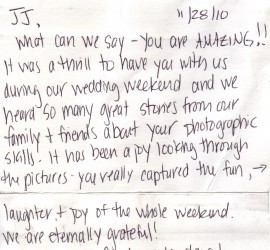 JJ, 11/28/10
What can we say - you are AMAZING!!
It was a thrill to have you with us
during our wedding weekend and we
heard so many great stories from our
family + friends about your photographic
skills! It has been a joy looking through
the pictures - you really captured the fun, →
laughter + joy of the whole weekend.
We are eternally grateful!